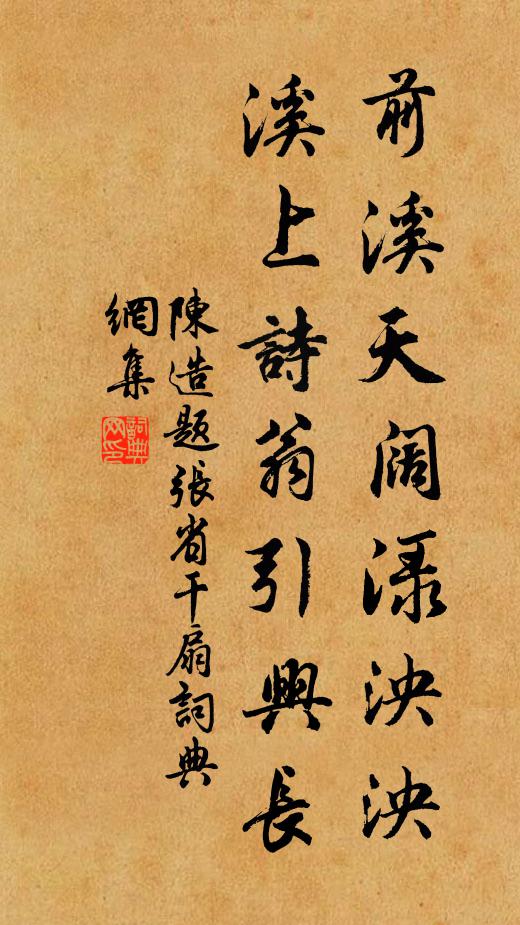 前溪天阔渌泱泱
溪上詩翁引興長
陳造題張省干扇詞典
網集
詞典
网印